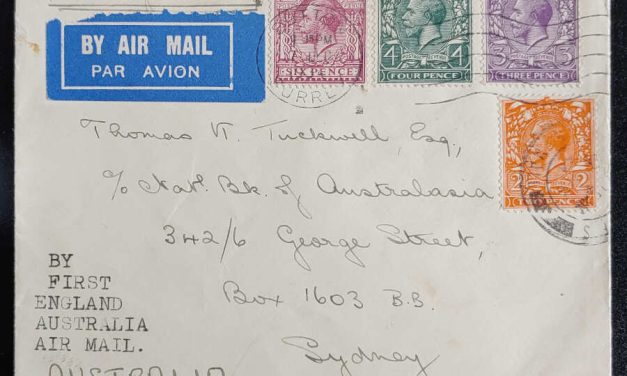 BY AIR MAIL
PAR AVION
SIX PENCE
FOUR PENCE
THREE PENCE
Thomas V. Tuckwell, Esq.,
c/o Natl. Bk. of Australasia
342/6 George Street,
Box 1603 B.B.
Sydney
BY
FIRST
ENGLAND
AUSTRALIA
AIR MAIL.
AUSTRALIA